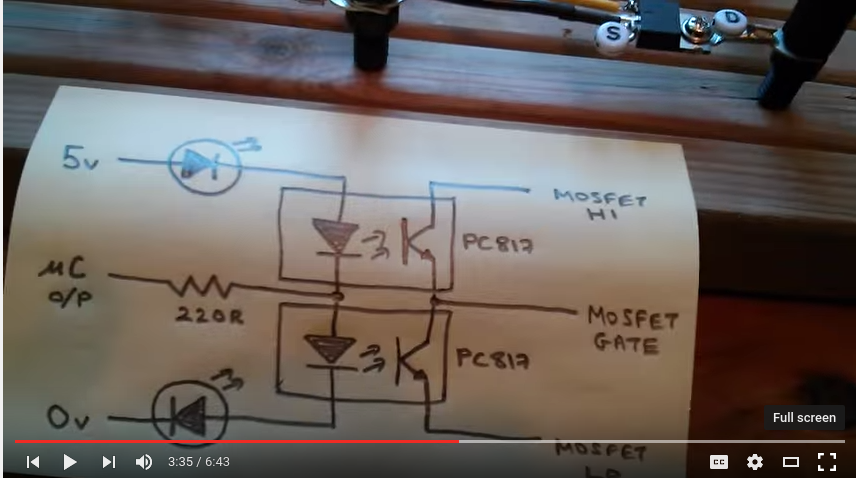 S
D
5v
MOSFET
HI
PC817
μC
O/P
220R
MOSFET
GATE
PC817
0v
MOSFET
Full screen
3:35 / 6:43
CC